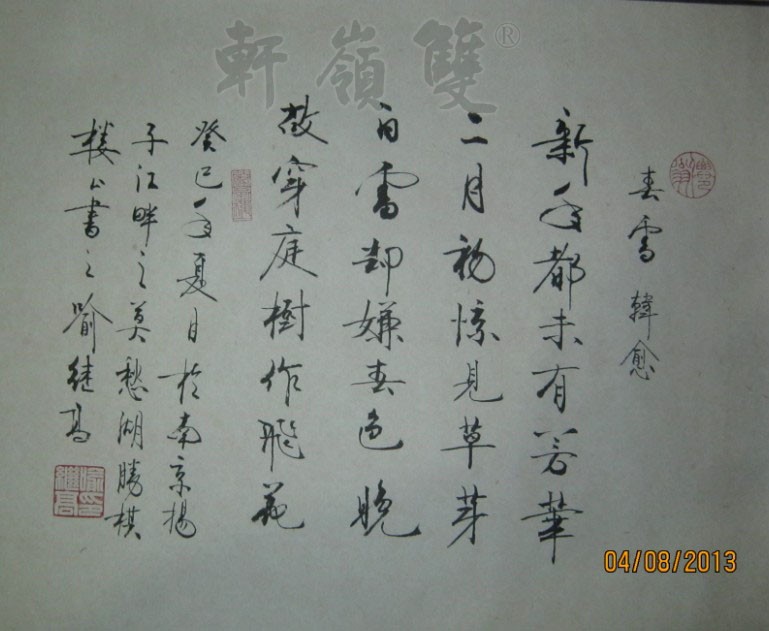 軒嶺雙®
春雪 韓愈
新年都未有芳華
二月初驚見草芽
白雪却嫌春色晚
故穿庭樹作飛花
癸巳年夏日於南京揚
子江畔之莫愁湖勝棋
樓上書之喻继高
喻 继高
04/08/2013